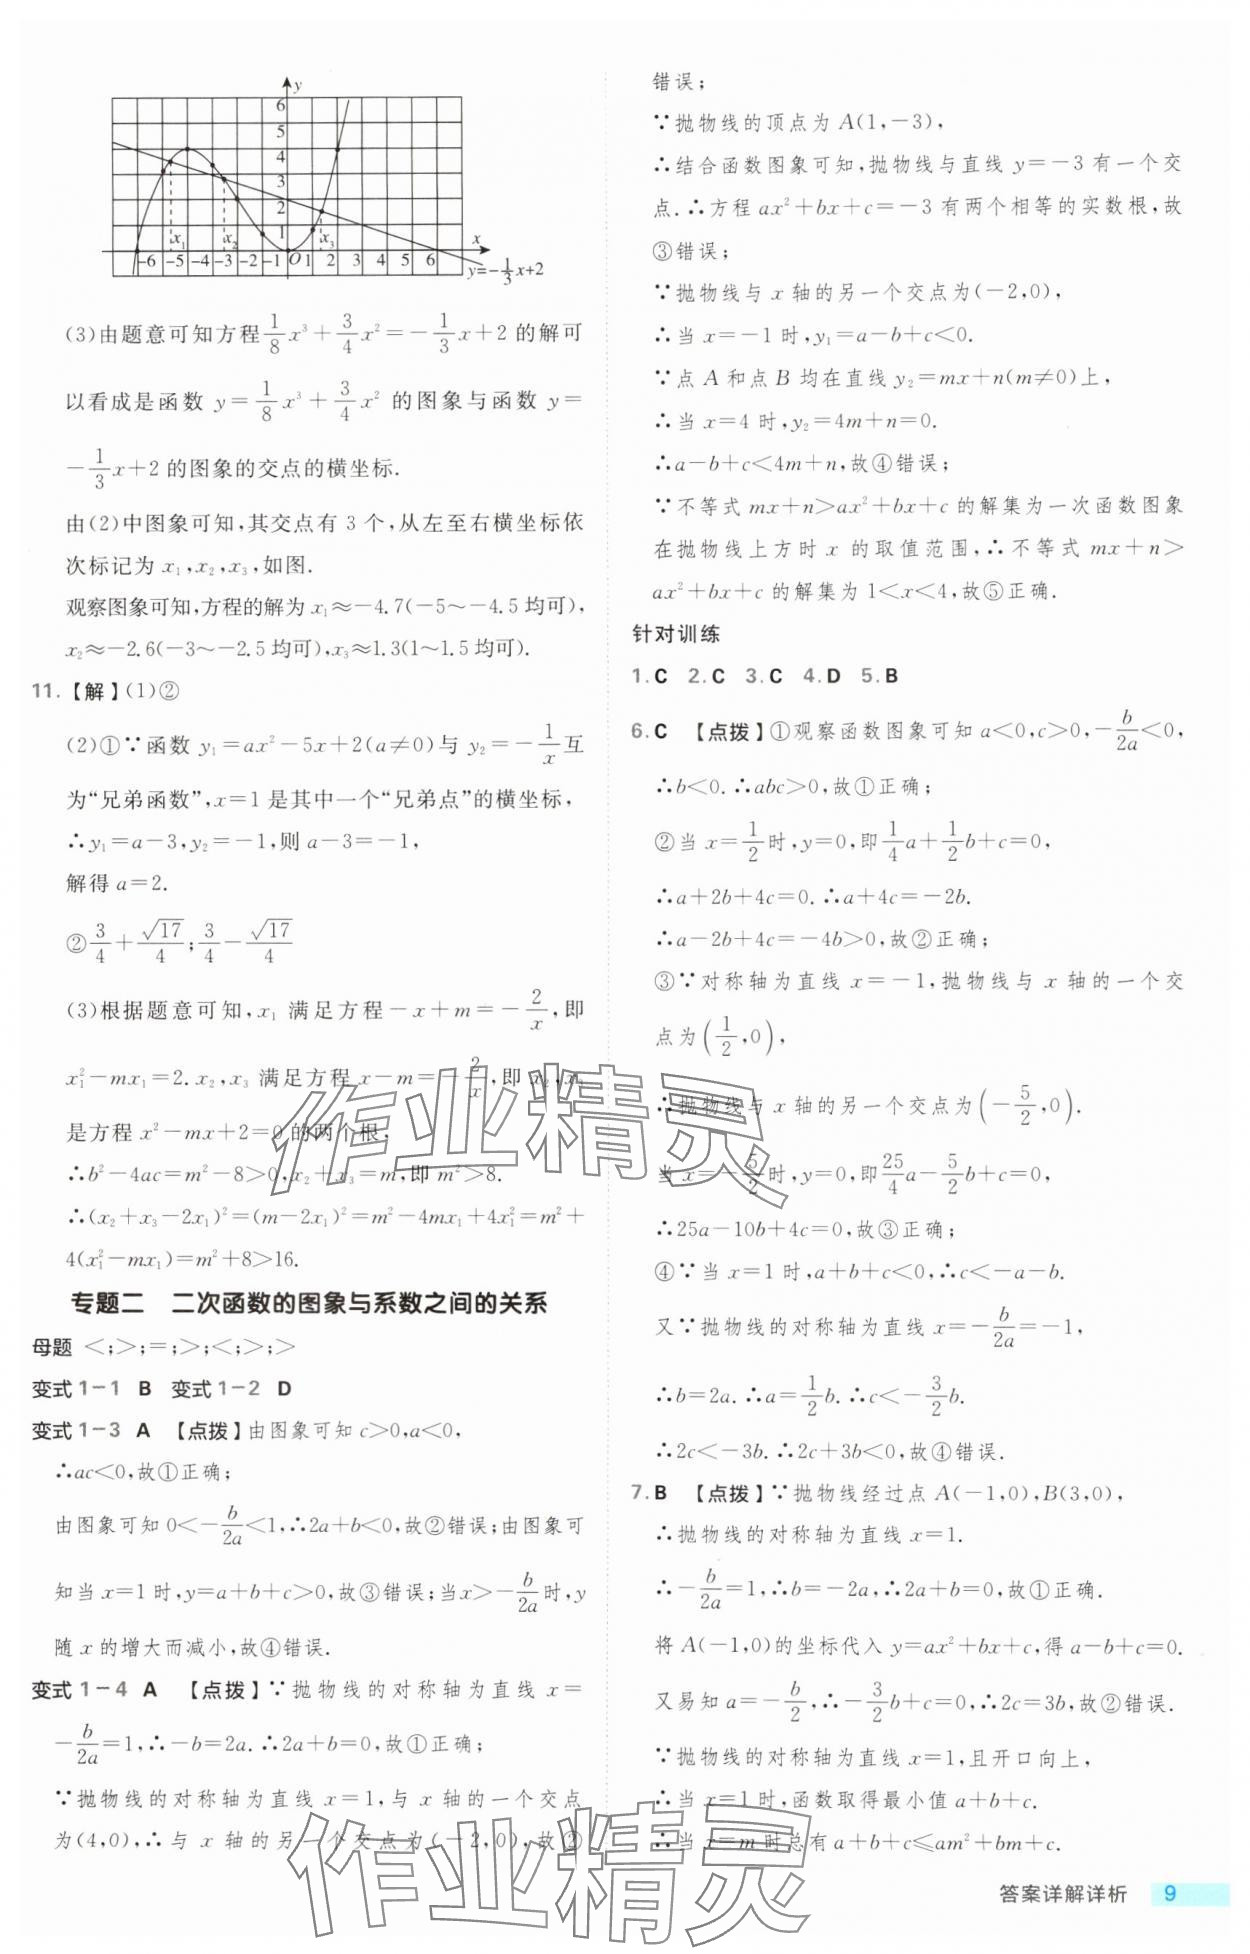 y
6
5
4
3
2
1
x₁ x₂ x₃ x
-6 -5 -4 -3 -2 -1 O 1 2 3 4 5 6
y=-1/3x+2
(3)由题意可知方程1/8x³+3/4x²=-1/3x+2的解可
以看成是函数 y=1/8x³+3/4x² 的图象与函数 y=
-1/3x+2的图象的交点的横坐标.
由(2)中图象可知,其交点有3个,从左至右横坐标依
次标记为 x₁,x₂,x₃,如图.
观察图象可知,方程的解为x₁≈-4.7(-5~-4.5均可),
x₂≈-2.6(-3~-2.5均可),x₃≈1.3(1~1.5均可).
11.【解】(1)②
(2)①∵函数 y₁=ax²-5x+2(a≠0)与 y₂=-1/x互
为“兄弟函数”,x=1是其中一个“兄弟点”的横坐标,
∴y₁=a-3,y₂=-1,则a-3=-1,
解得a=2.
②3/4+√17/4;3/4-√17/4
(3)根据题意可知,x₁ 满足方程-x+m=-2/x,即
x₁²-mx₁=2.x₂,x₃ 满足方程 x-m=-2/x,即 x₂,x₃
是方程 x²-mx+2=0的两个根,
∴b²-4ac=m²-8>0,x₂+x₃=m,即m²>8.
∴(x₂+x₃-2x₁)²=(m-2x₁)²=m²-4mx₁+4x₁²=m²+
4(x₁²-mx₁)=m²+8>16.
专题二 二次函数的图象与系数之间的关系
母题 <;>;=;>;<;>;>
变式1-1 B 变式1-2 D
变式1-3 A 【点拨】由图象可知c>0,a<0,
∴ac<0,故①正确;
由图象可知0<-b/2a<1,∴2a+b<0,故②错误;由图象可
知当x=1时,y=a+b+c>0,故③错误;当x>-b/2a时,y
随x的增大而减小,故④错误.
变式1-4 A 【点拨】∵抛物线的对称轴为直线 x=
-b/2a=1,∴-b=2a.∴2a+b=0,故①正确;
∵抛物线的对称轴为直线 x=1,与 x 轴的一个交点
为(4,0),∴与 x 轴的另一个交点为(-2,0),故②
错误;
∵抛物线的顶点为A(1,-3),
∴结合函数图象可知,抛物线与直线y=-3有一个交
点.∴方程 ax²+bx+c=-3有两个相等的实数根,故
③错误;
∵抛物线与x轴的另一个交点为(-2,0),
∴当x=-1时,y₁=a-b+c<0.
∵点A和点B均在直线y₂=mx+n(m≠0)上,
∴当x=4时,y₂=4m+n=0.
∴a-b+c<4m+n,故④错误;
∵不等式 mx+n>ax²+bx+c的解集为一次函数图象
在抛物线上方时 x 的取值范围,∴不等式 mx+n>
ax²+bx+c的解集为1<x<4,故⑤正确.
针对训练
1.C 2.C 3.C 4.D 5.B
6.C 【点拨】①观察函数图象可知a<0,c>0,-b/2a<0,
∴b<0.∴abc>0,故①正确;
②当x=1/2时,y=0,即1/4a+1/2b+c=0,
∴a+2b+4c=0.∴a+4c=-2b.
∴a-2b+4c=-4b>0,故②正确;
③∵对称轴为直线 x=-1,抛物线与 x 轴的一个交
点为(1/2,0),
∴抛物线与x轴的另一个交点为(-5/2,0).
当x=-5/2时,y=0,即25/4a-5/2b+c=0,
∴25a-10b+4c=0,故③正确;
④∵当x=1时,a+b+c<0,∴c<-a-b.
又∵抛物线的对称轴为直线x=-b/2a=-1,
∴b=2a.∴a=1/2b.∴c<-3/2b.
∴2c<-3b.∴2c+3b<0,故④错误.
7.B 【点拨】∵抛物线经过点A(-1,0),B(3,0),
∴抛物线的对称轴为直线x=1.
∴-b/2a=1,∴b=-2a,∴2a+b=0,故①正确.
将A(-1,0)的坐标代入y=ax²+bx+c,得a-b+c=0.
又易知a=-b/2,∴-3/2b+c=0,∴2c=3b,故②错误.
∵抛物线的对称轴为直线x=1,且开口向上,
∴当x=1时,函数取得最小值a+b+c.
∴当x=m时总有a+b+c≤am²+bm+c.
答案详解详析 9
作业精灵
作业精灵